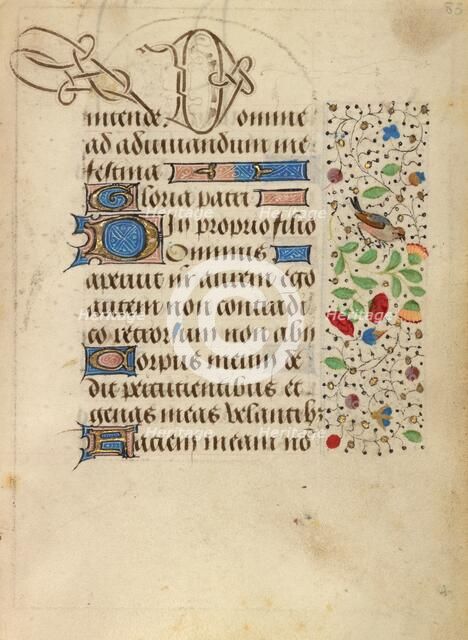 83
intende. Domine
ad adiuuandum me
festina
Gloria patri
In proprio filio
Dominus
aperuit m aurem ego
autem non contradi
co retrorsum non abij
Corpus meum de
di percutientibus et
genas meas vellentibz
Faciem meam no
heritage images